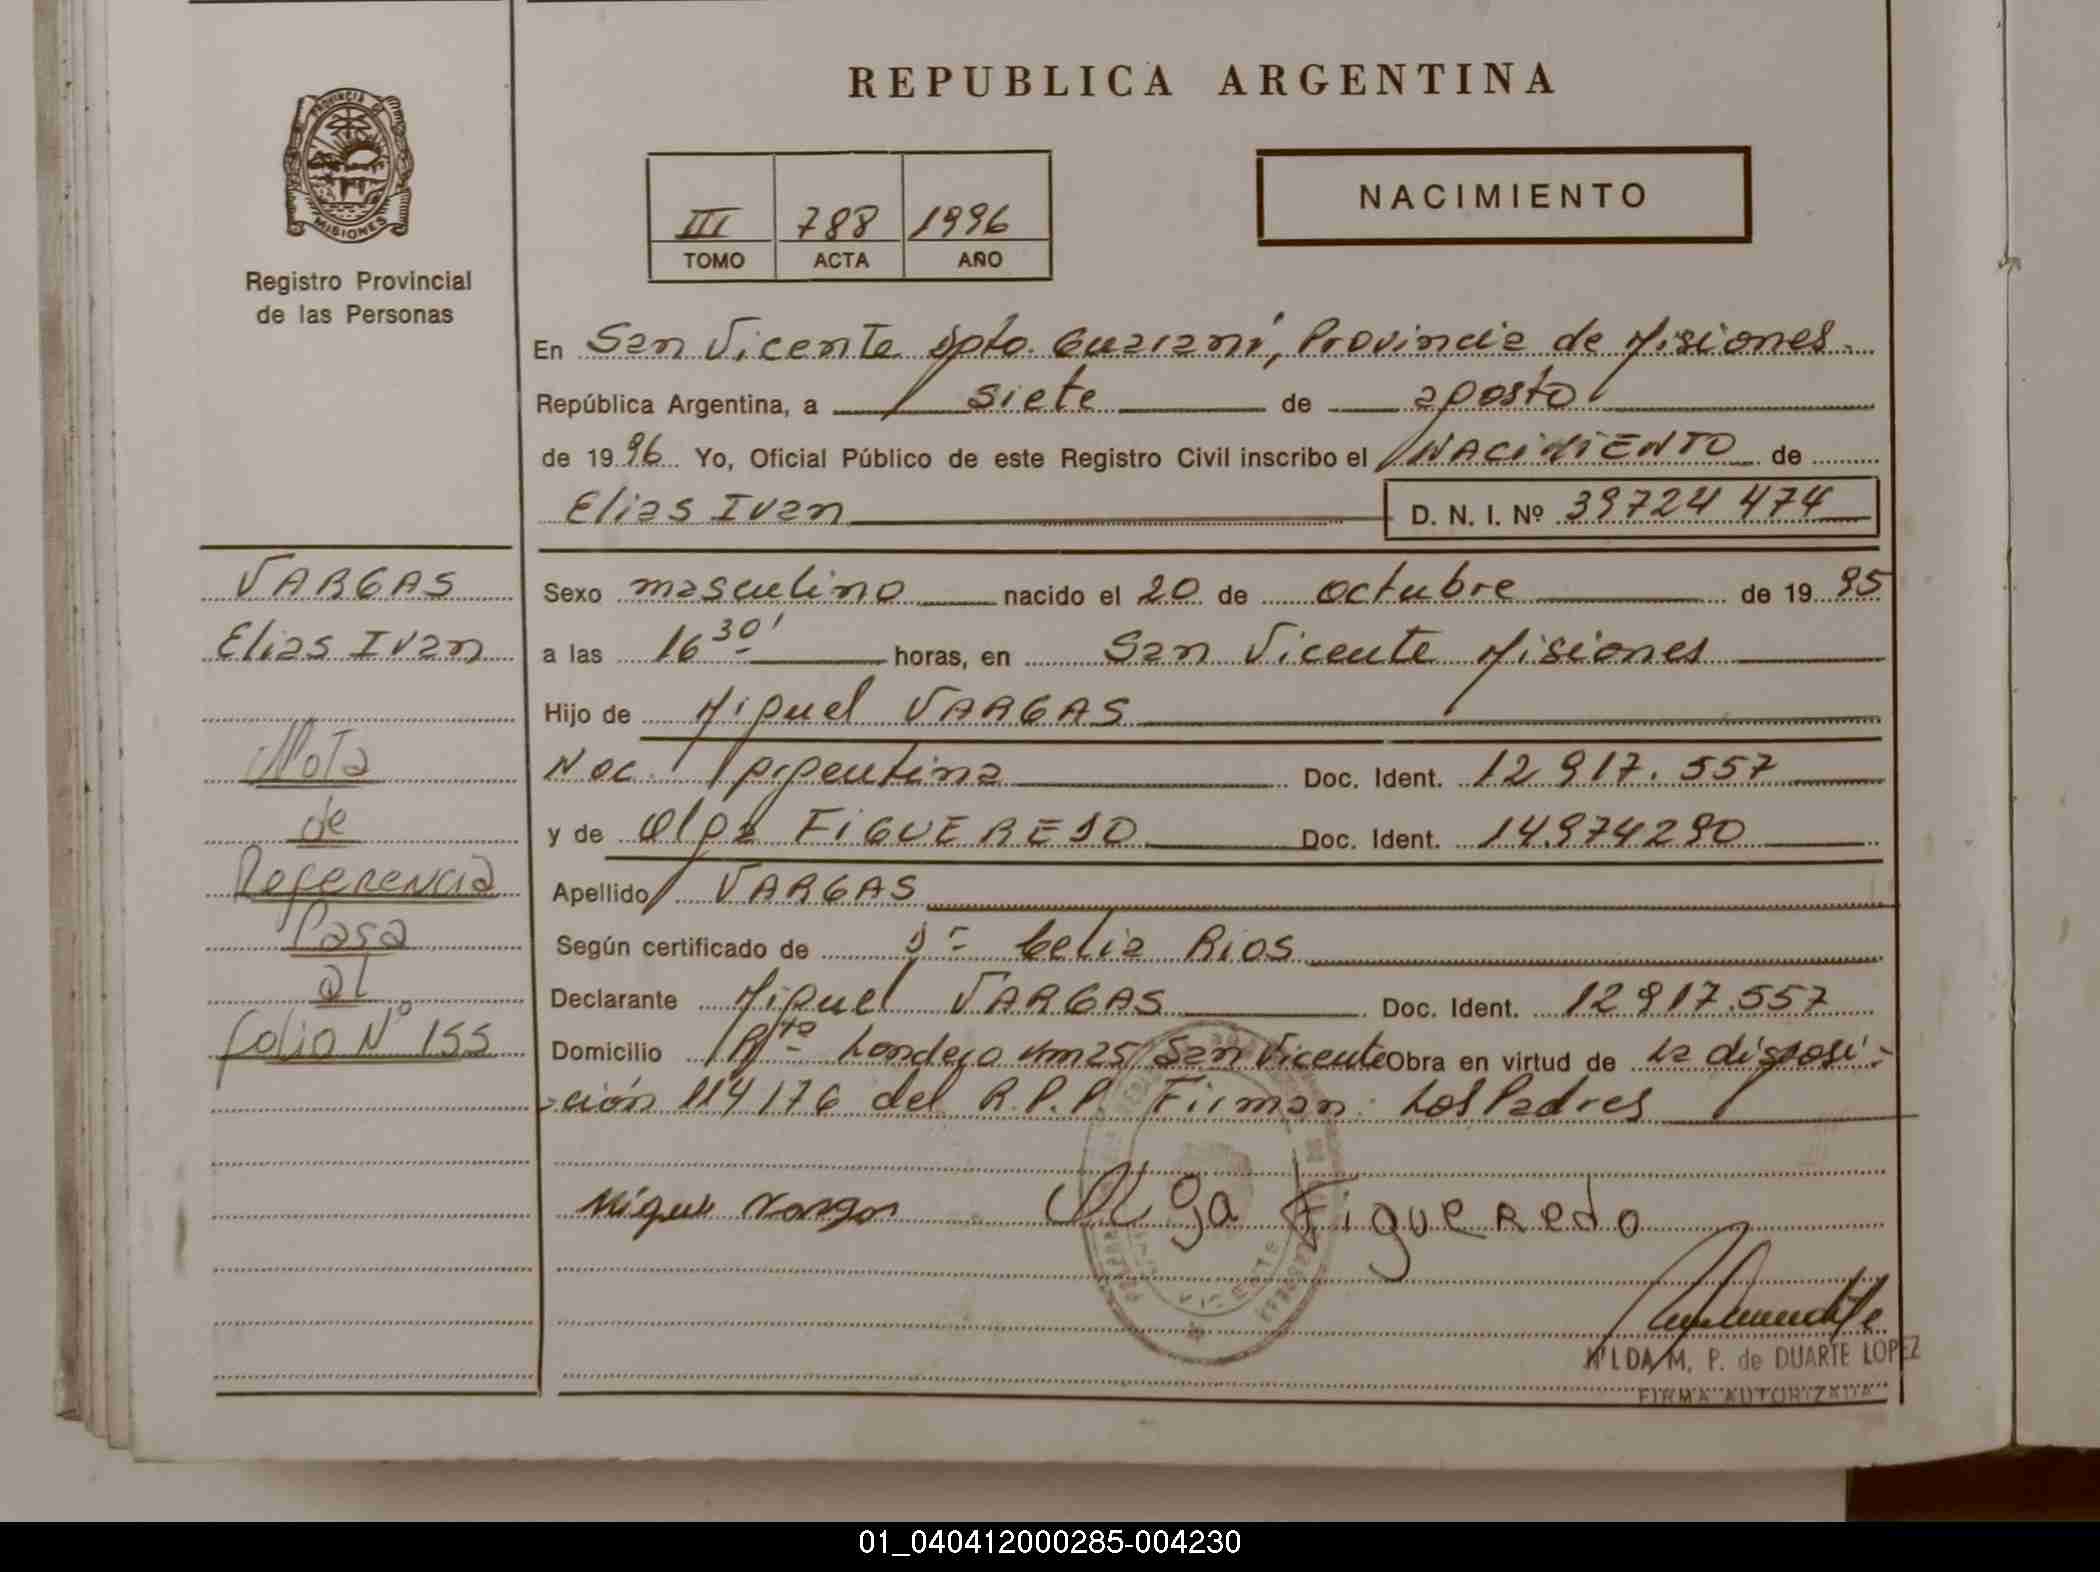 REPUBLICA ARGENTINA
PROVINCIA DE
MISIONES
Registro Provincial
de las Personas
III 788 1996
TOMO ACTA AÑO
NACIMIENTO
En San Vicente Dpto. Guaraní, Provincia de Misiones
República Argentina, a siete de agosto
de 1996 Yo, Oficial Público de este Registro Civil inscribo el NACIMIENTO de
Elias Ivan D. N. I. Nº 39724 474
VARGAS
Elias Ivan
Nota
de
Referencia
Pasa
al
folio Nº 155
Sexo masculino nacido el 20 de octubre de 1995
a las 16 30' horas, en San Vicente Misiones
Hijo de Miguel VARGAS
Nac. Argentina Doc. Ident. 12.917.557
y de Olga FIGUEREDO Doc. Ident. 14.974290
Apellido VARGAS
Según certificado de Dr Celia RIOS
Declarante Miguel VARGAS Doc. Ident. 12917.557
Domicilio Londero Km 25 San Vicente Obra en virtud de La disposi-
-ción 114176 del R.P.P. Firman: Los Padres
Miguel Vargas Olga Figueredo
NILDA M. P. de DUARTE LOPEZ
FIRMA AUTORIZADA
01_040412000285-004230